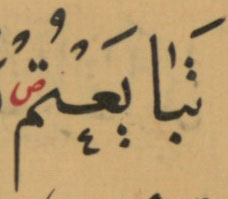 تَبَايَعْتُمْ ص